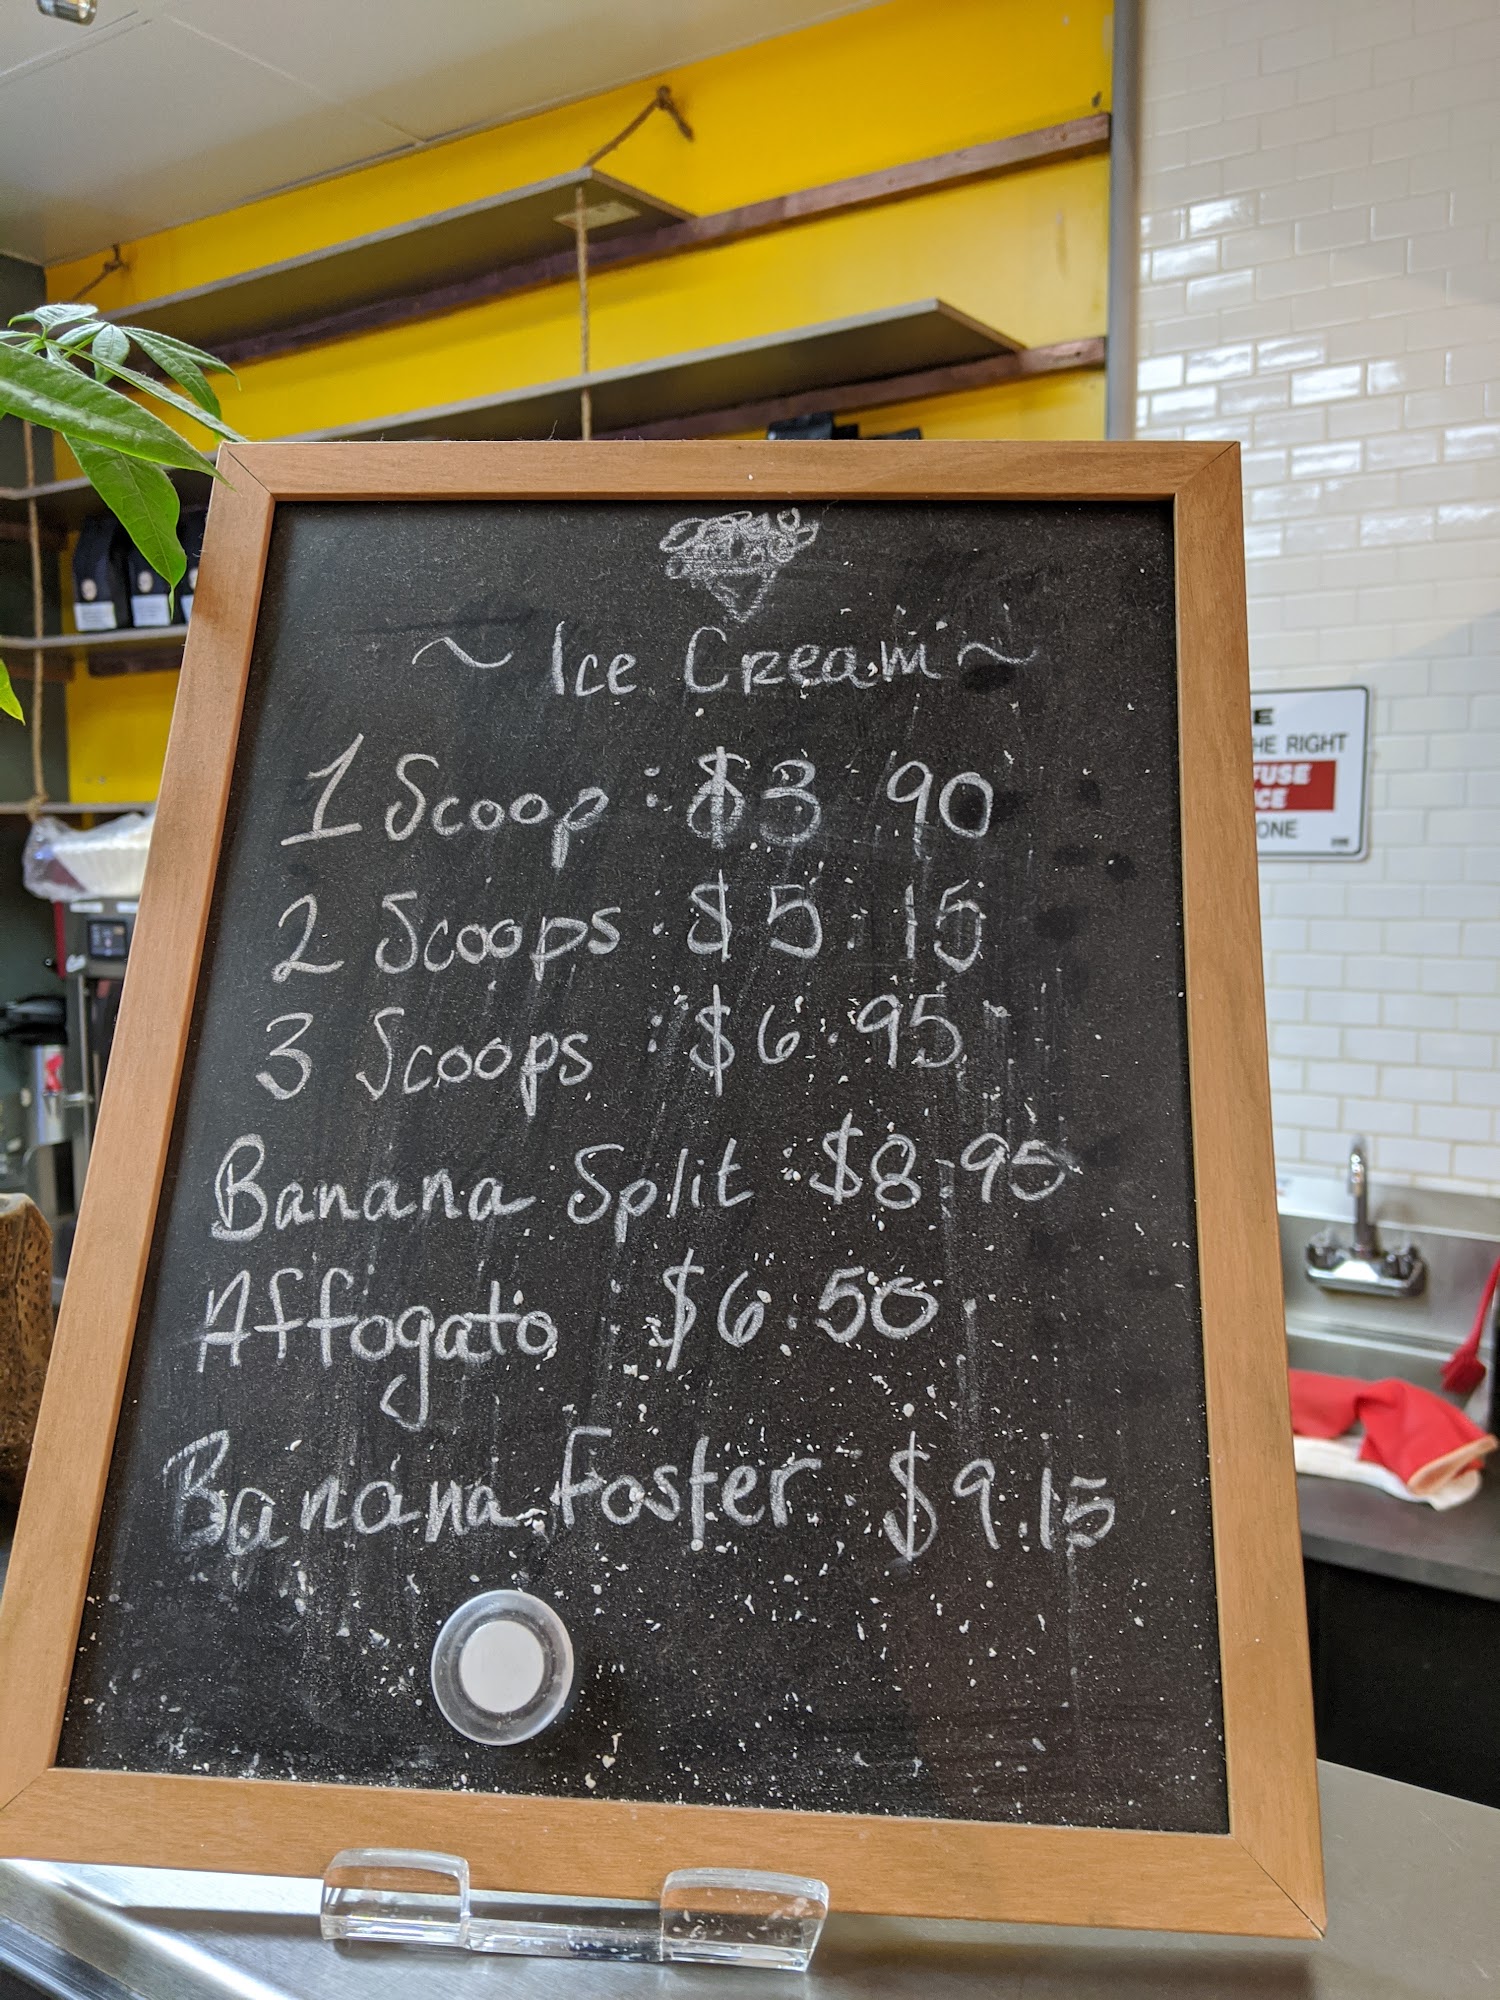 ~ Ice Cream ~
1 Scoop : $3.90
2 Scoops : $5.15
3 Scoops : $6.95
Banana Split : $8.95
Affogato : $6.50
Banana Foster : $9.15
E
HE RIGHT
FUSE
CE
ONE